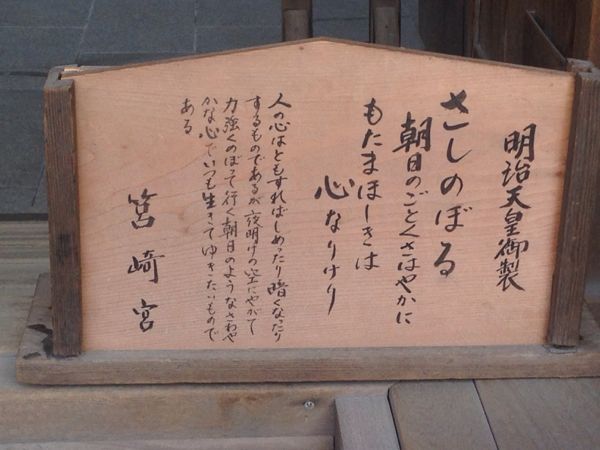 明治天皇御製
さしのぼる
朝日のごとくさはやかに
もたまほしきは
心なりけり
人の心はともすればしめったり暗くなったり
するものであるが夜明けの空にやがて
力強くのぼって行く朝日のようなさわや
かな心でいつも生きてゆきたいもので
ある
筥崎宮